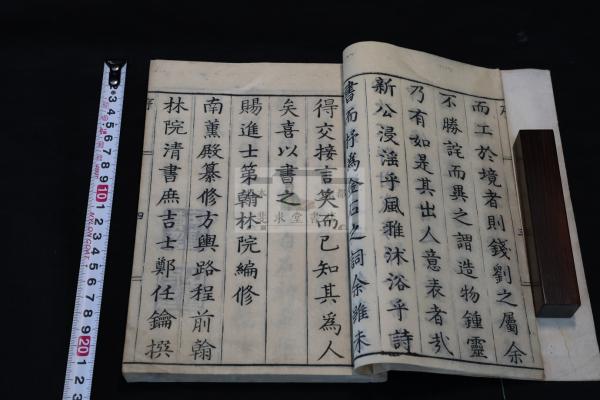 而工於境者則錢劉之屬余
不勝詫而異之謂造物鍾靈
乃有如是其出人意表者哉
新公浸淫乎風雅沐浴乎詩
書而抒為金石之詞余雖未
得交接言笑而已知其為人
矣喜以書之
賜進士第翰林院編修
南薰殿纂修方輿路程前翰
林院清書庶吉士鄭任鑰撰
序
三
2 3 4 5 6 7 8 9 10 1 2 3 4 5 6 7 8 9 20 1 2 3